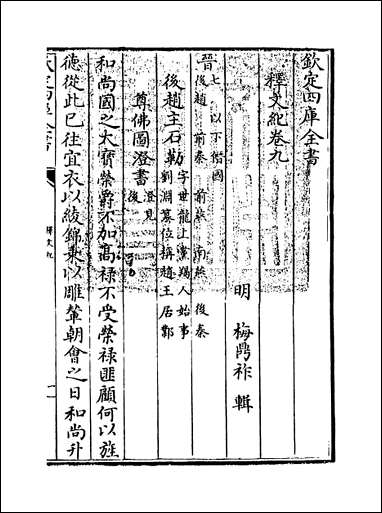 欽定四庫全書
釋文紀卷九
明 梅鼎祚 輯
晉七 以下僭國
後趙 前秦 前燕 南燕 後秦
後趙主石勒 字世龍上黨羯人始事
劉淵篡位稱趙王居鄴
尊佛圖澄書 澄見
後
和尚國之大寶榮爵不加高祿不受榮祿匪顧何以旌
德從此已往宜衣以綾錦乘以雕輦朝會之日和尚升
釋文紀